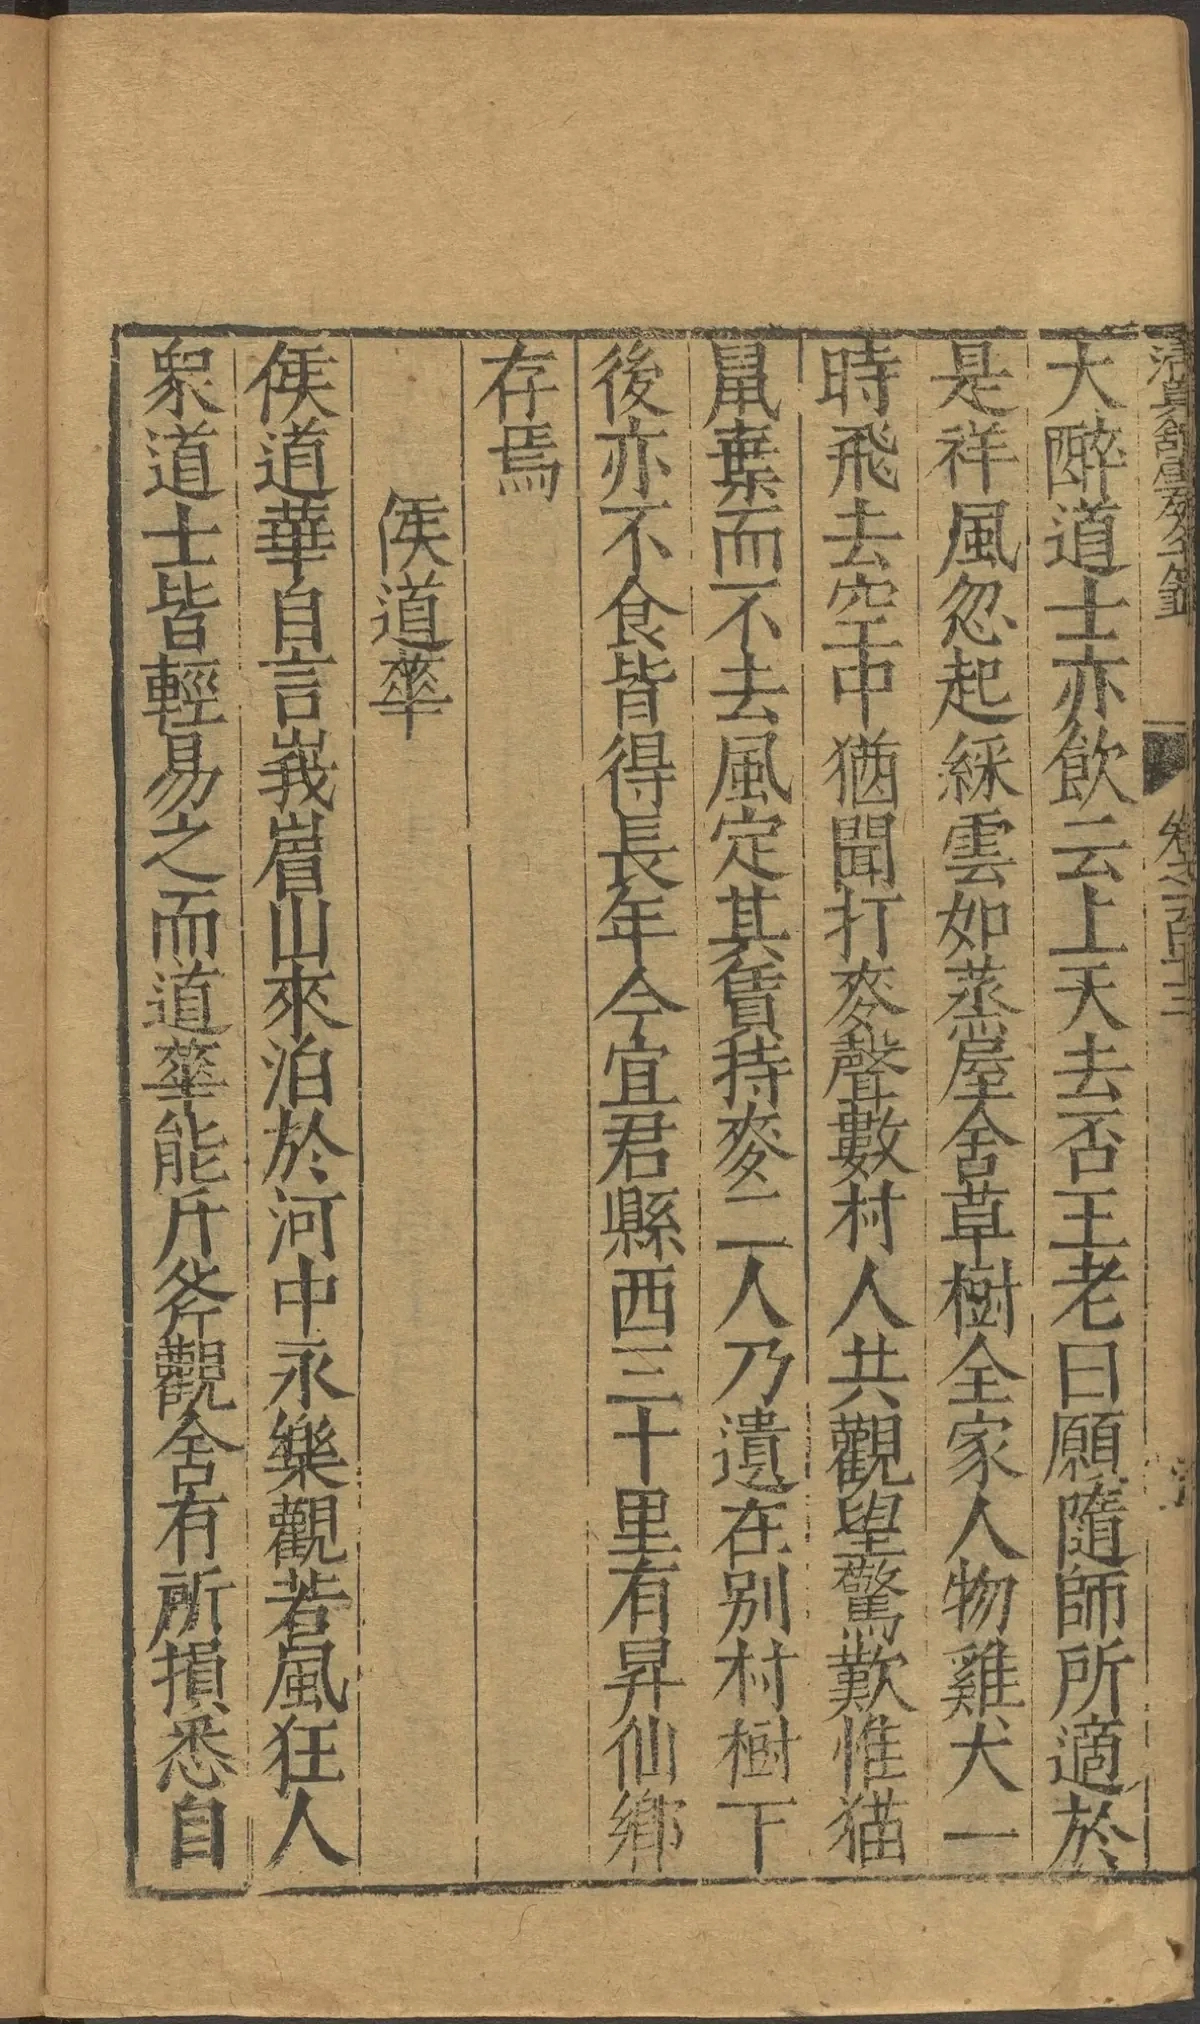 大醉道士亦飲云上天去否王老曰願隨師所適於
是祥風忽起綵雲如蒸屋舍草樹全家人物雞犬一
時飛去空中猶聞打麥聲數村人共觀望驚歎惟猫
鼠棄而不去風定其賃持麥二人乃遺在别村樹下
後亦不食皆得長年今宜君縣西三十里有昇仙鄉
存焉
侯道華
侯道華自言峩眉山來泊於河中永樂觀若風狂人
衆道士皆輕易之而道華能斤斧觀舍有所損悉自